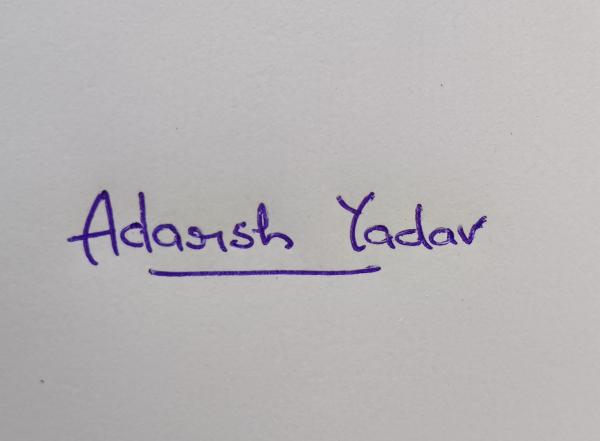 Adarsh Yadav